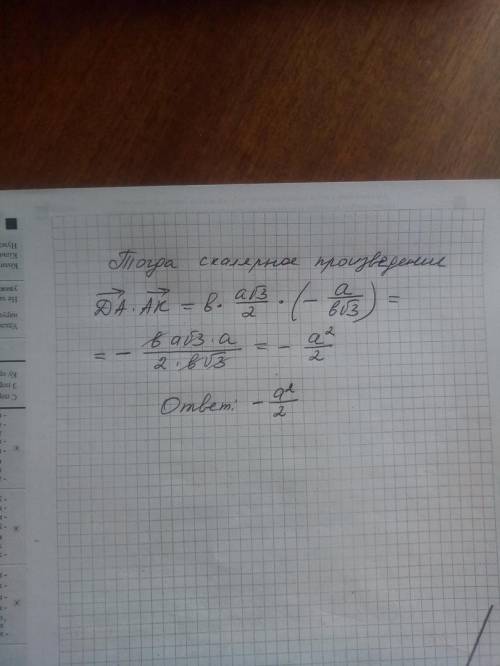 Тогда скалярное произведение
$\overrightarrow{DA} \cdot \overrightarrow{AK} = b \cdot \frac{a\sqrt{3}}{2} \cdot \left(-\frac{a}{b\sqrt{3}}\right) =$
$= -\frac{b\,a\sqrt{3} \cdot a}{2 \cdot b\sqrt{3}} = -\frac{a^2}{2}$
Ответ: $-\frac{a^2}{2}$